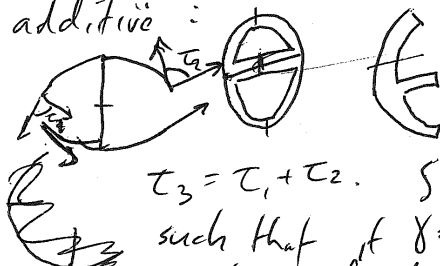 additive :
τ₂
τ₁
τ₃ = τ₁ + τ₂. S
such that if γ =